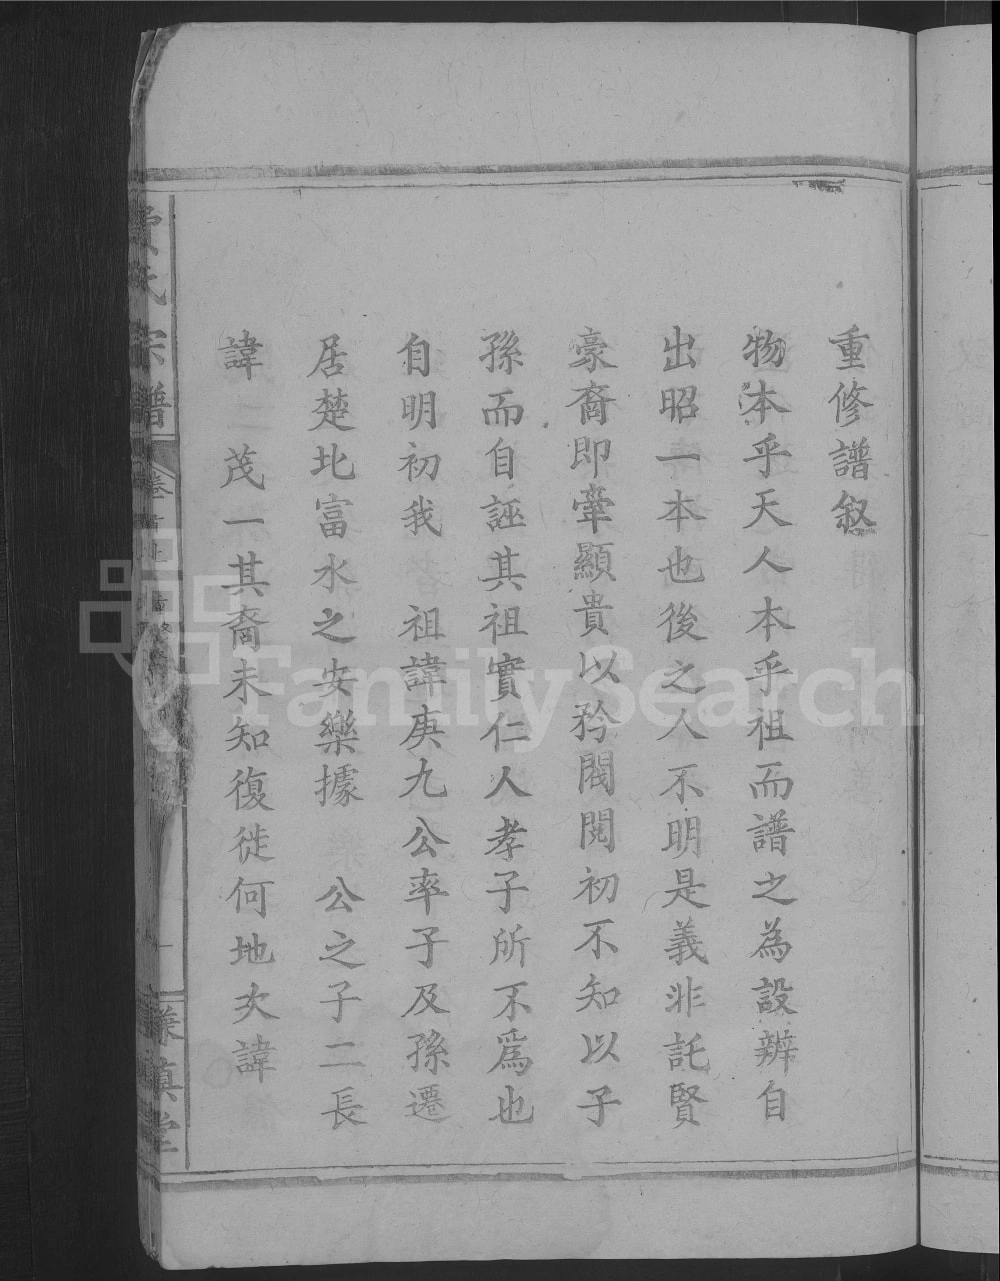 重修譜叙
物本乎天人本乎祖而譜之為設辨自
出昭一本也後之人不明是義非託賢
豪裔即牽顯貴以矜閥閱初不知以子
孫而自誣其祖實仁人孝子所不爲也
自明初我 祖諱庚九公率子及孫遷
居楚北富水之安樂據 公之子二長
諱 茂一其裔未知復徙何地次諱
氏宗譜 卷首上
FamilySearch